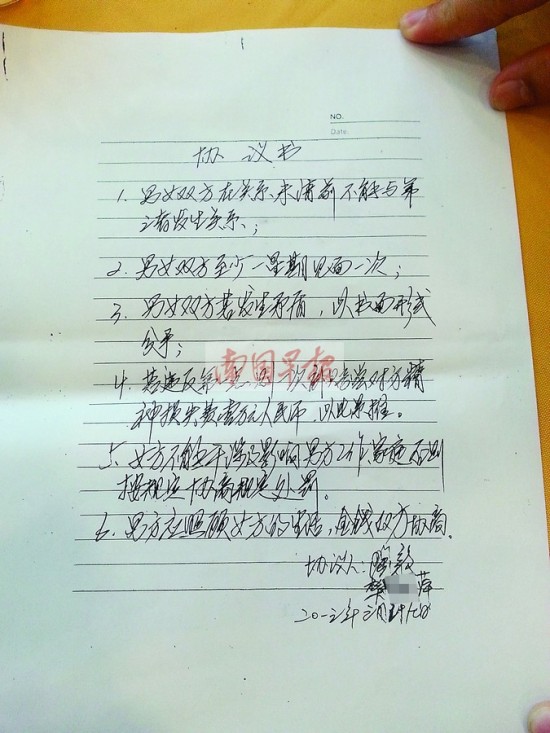 NO.
Date
协议书
1. 男女双方在关系未清前不能与第
三者发生关系；
2. 男女双方至少一星期见面一次；
3. 男女双方若发生矛盾，以书面形式
分手；
南国早报
4. 若违反第 一次 赔偿对方精
神损失费壹万元人民币，以此类推。
5. 女方不能干涉及影响男方工作家庭否则
按规定协商规定处罚。
6. 男方应照顾女方的生活，金钱双方协商。
协议人：
萍
二〇一三年